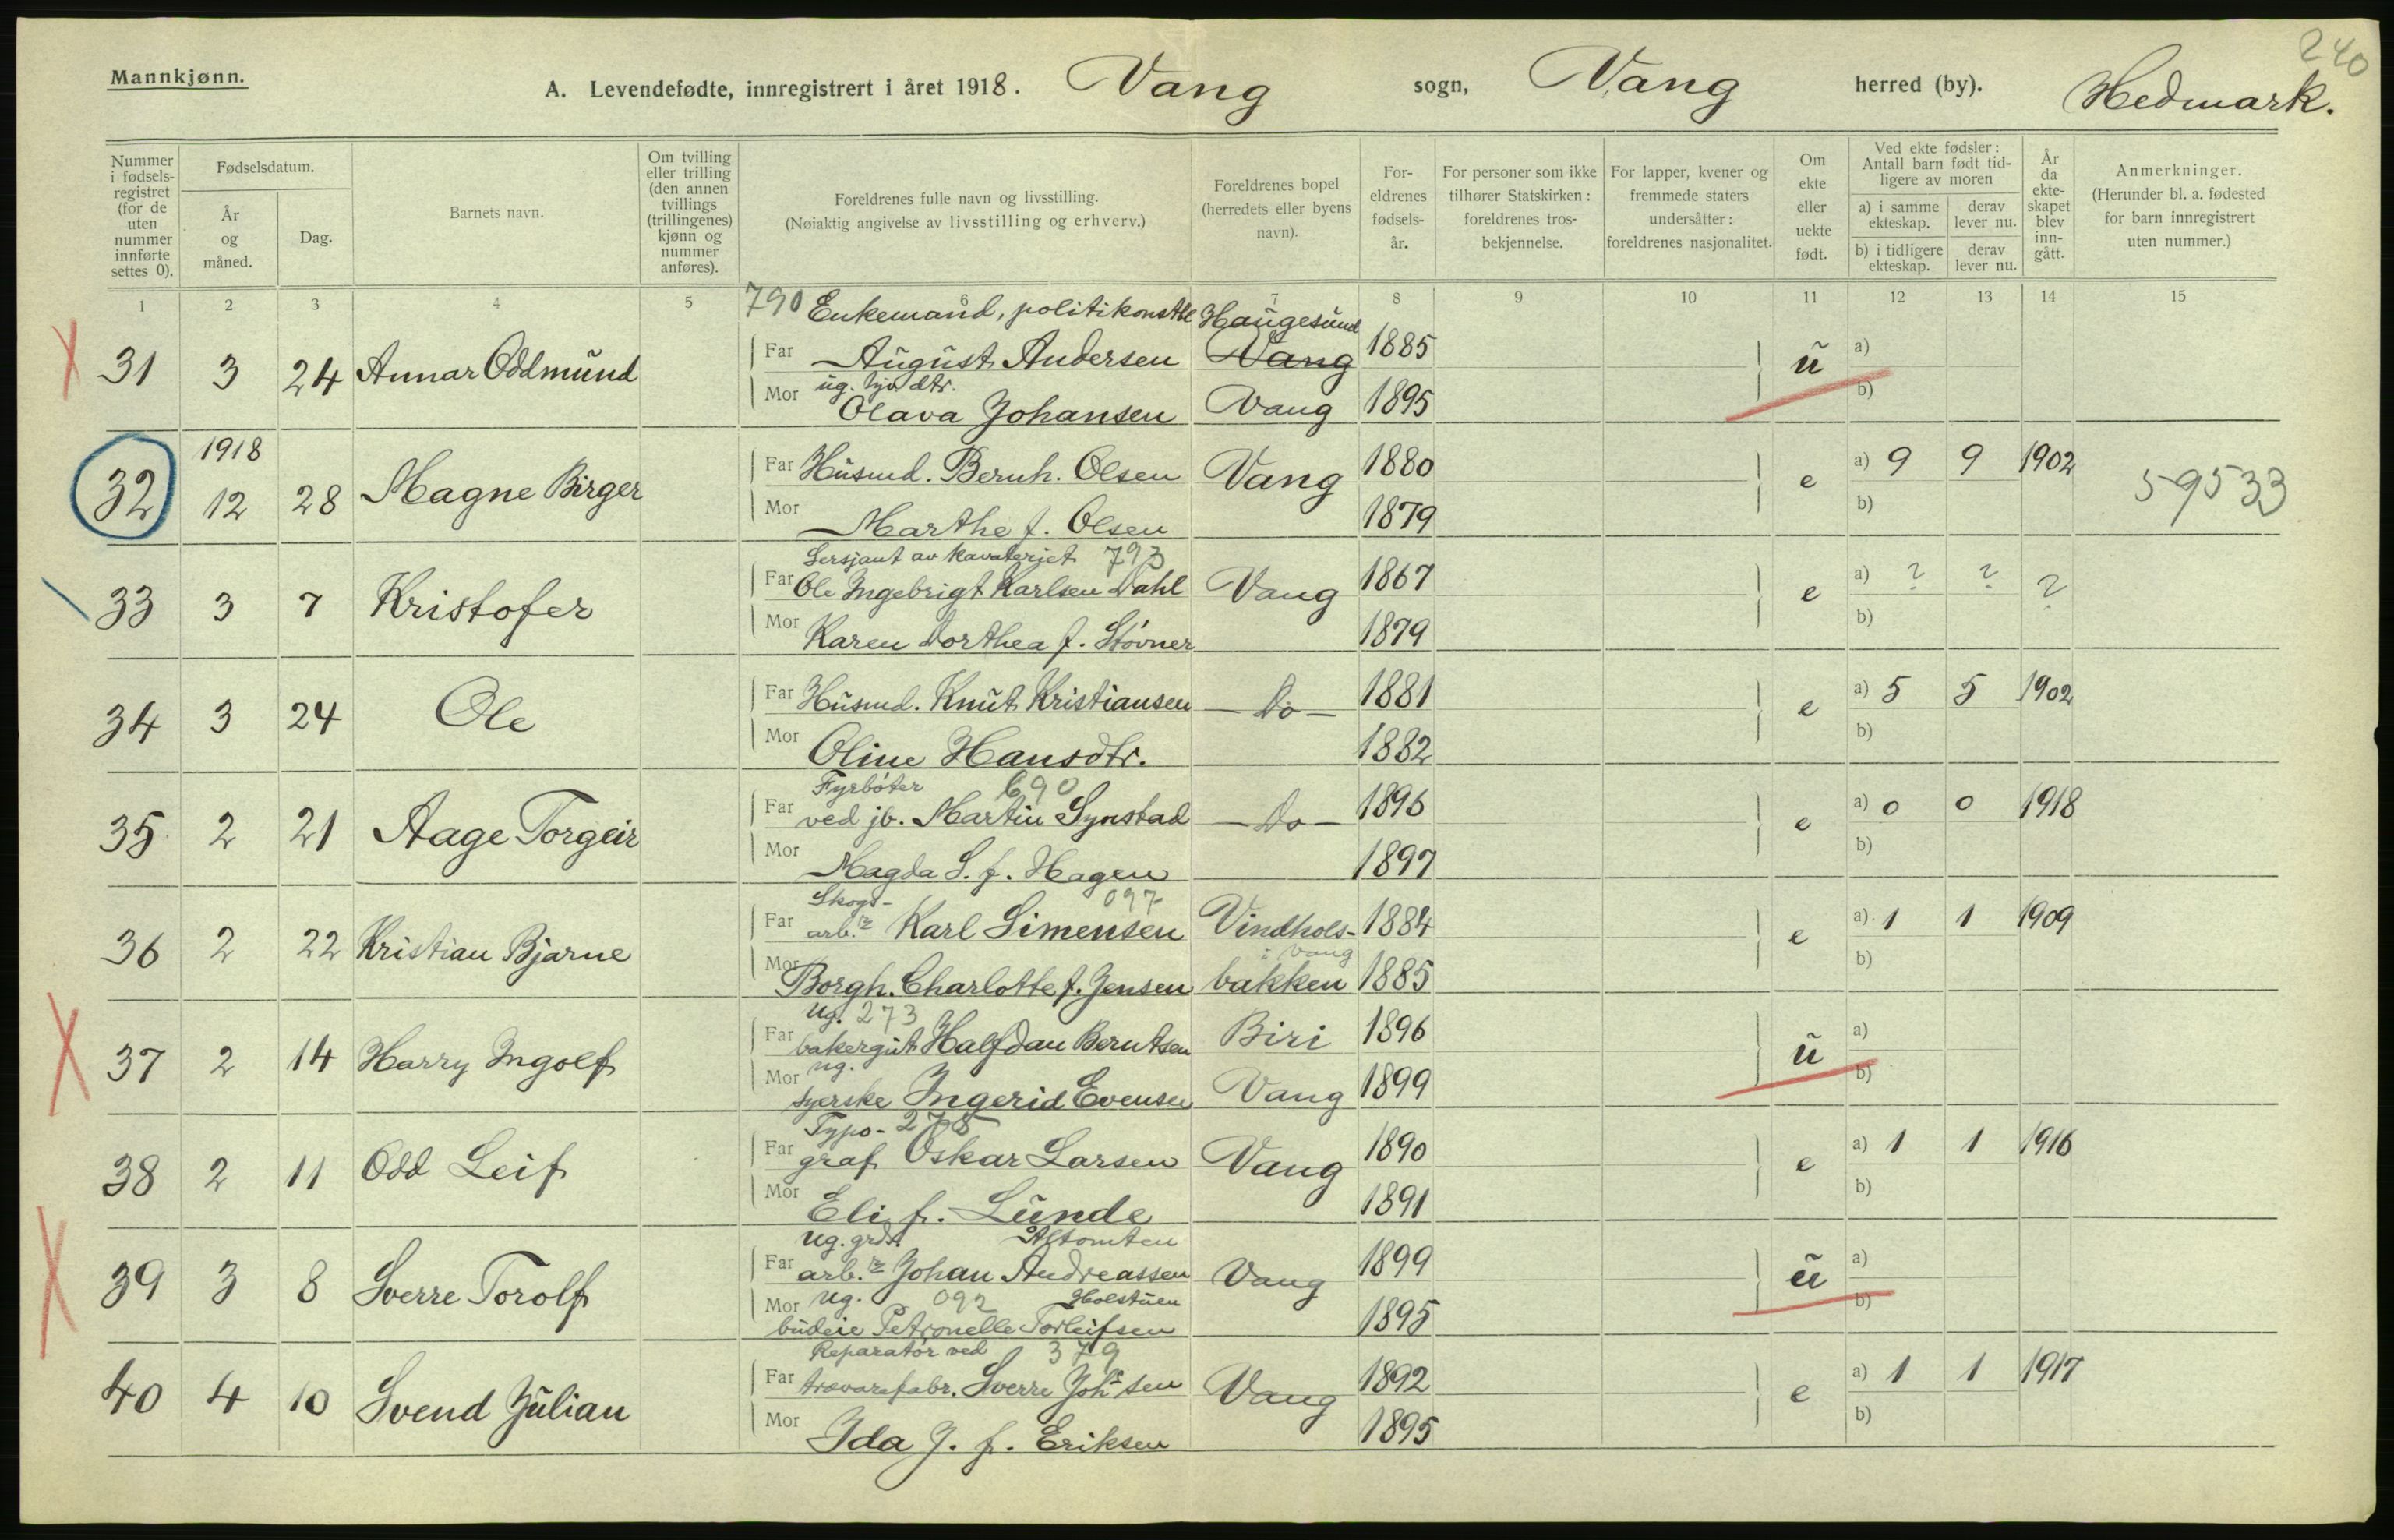 240
Mannkjønn.
A. Levendefødte, innregistrert i året 1918. Vang sogn, Vang herred (by). Hedmark.
Nummer i fødselsregistret (for de uten nummer innførte settes 0).
Fødselsdatum.
År og måned.
Dag.
Barnets navn.
Om tvilling eller trilling (den annen tvillings (trillingenes) kjønn og nummer anføres).
Foreldrenes fulle navn og livsstilling.
(Nøiaktig angivelse av livsstilling og erhverv.)
Foreldrenes bopel (herredets eller byens navn).
Foreldrenes fødselsår.
For personer som ikke tilhører Statskirken: foreldrenes trosbekjennelse.
For lapper, kvener og fremmede staters undersåtter: foreldrenes nasjonalitet.
Om ekte eller uekte født.
Ved ekte fødsler: Antall barn født tidligere av moren
a) i samme ekteskap. derav lever nu.
b) i tidligere ekteskap. derav lever nu.
År da ekteskapet blev inngått.
Anmerkninger.
(Herunder bl. a. fødested for barn innregistrert uten nummer.)
1 2 3 4 5 6 7 8 9 10 11 12 13 14 15
790 Enkemand, politikonstbl Haugesund
31 3 24 Annar Oddmund Far August Andersen Vang 1885 u a)
ug. hjv. dtr.
Mor Olava Johansen Vang 1895 b)
1918
32 12 28 Magne Birger Far Husmd. Bernh. Olsen Vang 1880 e a) 9 9 1902 59533
Mor Marthe f. Olsen 1879 b)
Sersjant av kavaleriet 793
33 3 7 Kristofer Far Ole Ingebrigt Karlsen Dahl Vang 1867 e a) ? ? ?
Mor Karen Dorthea f. Stovner 1879 b)
34 3 24 Ole Far Husmd. Knut Kristiansen — Do — 1881 e a) 5 5 1902
Mor Oline Hansdtr. 1882 b)
Fyrbøter 690
35 2 21 Aage Torgeir Far ved jb. Martin Synstad — Do — 1896 e a) 0 0 1918
Mor Magda S. f. Hagen 1897 b)
Skogs- 097
36 2 22 Kristian Bjarne Far arb.r Karl Simensen Vindhols- 1884 e a) 1 1 1909
i Vang
Mor Borgh. Charlotte f. Jensen bakken 1885 b)
Ug. 273
37 2 14 Harry Ingolf Far bakergut Halfdan Berntsen Biri 1896 u a)
ug.
Mor syerske Ingerid Evensen Vang 1899 b)
Typo- 278
38 2 11 Odd Leif Far graf Oskar Larsen Vang 1890 e a) 1 1 1916
Mor Eli f. Lunde 1891 b)
Ug. grds. Altomten
39 3 8 Sverre Torolf Far arb.r Johan Andreassen Vang 1899 u a)
Mor Ug. 092 Holstuen
budeie Petronelle Torleifsen 1895 b)
Reparatør ved 379
40 4 10 Svend Julian Far trævarefabr. Sverre Johsen Vang 1892 e a) 1 1 1917
Mor Ida J. f. Eriksen 1895 b)